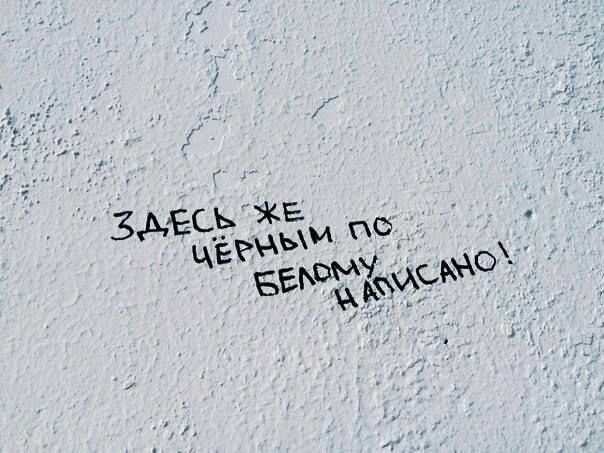 ЗДЕСЬ ЖЕ
ЧЁРНЫМ ПО
БЕЛОМУ
НАПИСАНО!